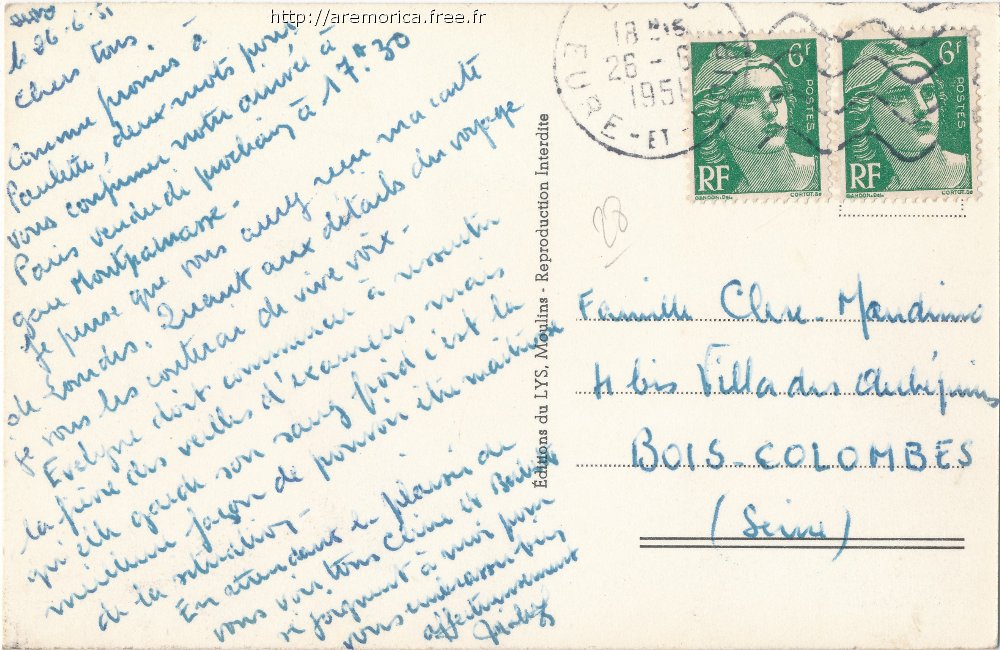 http://aremorica.free.fr
le 26-6-51
Chers tous
Comme promis à
Paulette, deux mots pour
vous confirmer notre arrivée à
Paris vendredi prochain à 17h30
gare Montparnasse.
Je pense que vous aurez reçu ma carte
de Lourdes. Quant aux détails du voyage
je vous les conterai de vive voix.
Evelyne doit commencer à ressentir
la fièvre des veilles d'examens mais
qu'elle garde son sang froid c'est la
meilleure façon de pouvoir être maîtresse
de la situation.
En attendant le plaisir de
vous voir tous Céline et
se joignent à moi pour
vous embrasser bien
affectueusement
Éditions du LYS, Moulins - Reproduction Interdite
18 H
26 - 6
1951
EURE-ET-
6F
POSTES
RF
GANDON.Del.
CORTOT.Sc
6F
POSTES
RF
GANDON.Del.
CORTOT.Sc
Famille Clerc-
4 bis Villa des Aubépines
BOIS-COLOMBES
(Seine)